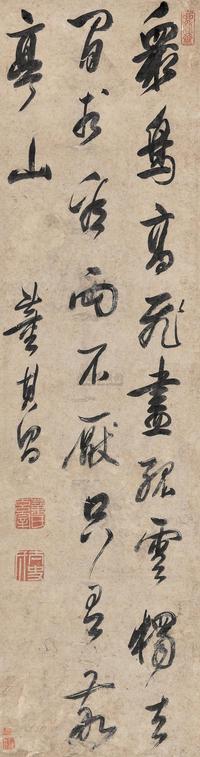 衆鳥高飛盡孤雲獨去
閒相看兩不厭只有敬
亭山
董其昌